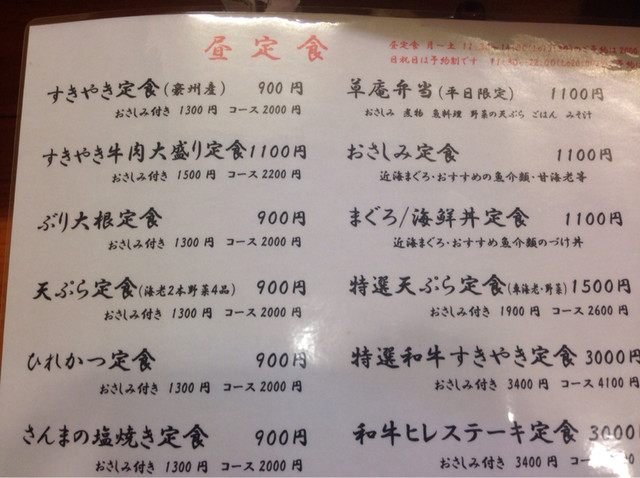 昼定食
昼定食 月〜土
日祝日は予約制です
すきやき定食(豪州産) 900円
おさしみ付き 1300円 コース2000円
すきやき牛肉大盛り定食1100円
おさしみ付き 1500円 コース2200円
ぶり大根定食 900円
おさしみ付き 1300円 コース2000円
天ぷら定食(海老2本野菜4品) 900円
おさしみ付き 1300円 コース2000円
ひれかつ定食 900円
おさしみ付き 1300円 コース2000円
さんまの塩焼き定食 900円
おさしみ付き 1300円 コース2000円
草庵弁当(平日限定) 1100円
おさしみ 煮物 魚料理 野菜の天ぷら ごはん みそ汁
おさしみ定食 1100円
近海まぐろ・おすすめの魚介類・甘海老等
まぐろ/海鮮丼定食 1100円
近海まぐろ・おすすめ魚介類のづけ丼
特選天ぷら定食(車海老・野菜)1500円
おさしみ付き 1900円 コース2600円
特選和牛すきやき定食 3000円
おさしみ付き 3400円 コース4100円
和牛ヒレステーキ定食 3000
おさしみ付き 3400円 コース